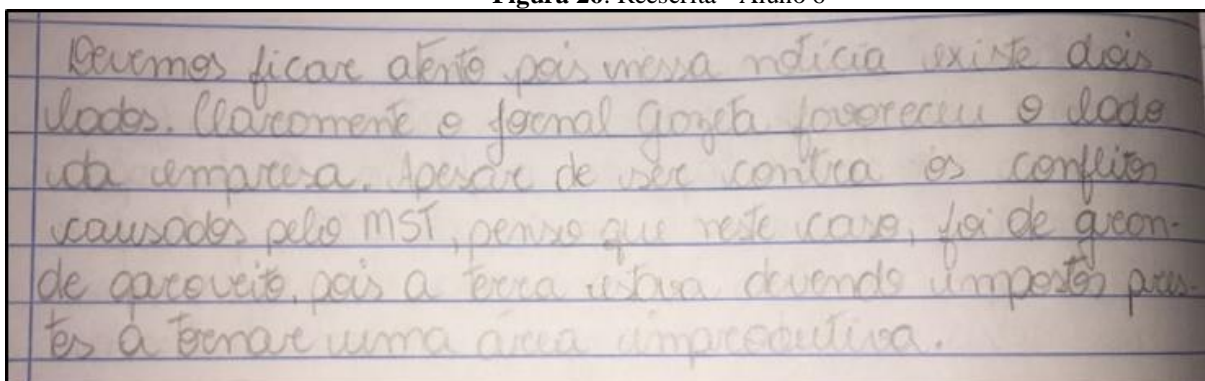 Figura 20: Reescrita - Aluno 8
Devemos ficar atento pois nessa noticia existe dois
lados. Claramente o jornal Gazeta favoreceu o lado
da empresa. Apesar de ser contra os conflitos
causados pelo MST, penso que neste caso, foi de gran-
de aproveito, pois a terra estava devendo impostos pres-
tes a tornar uma área improdutiva.